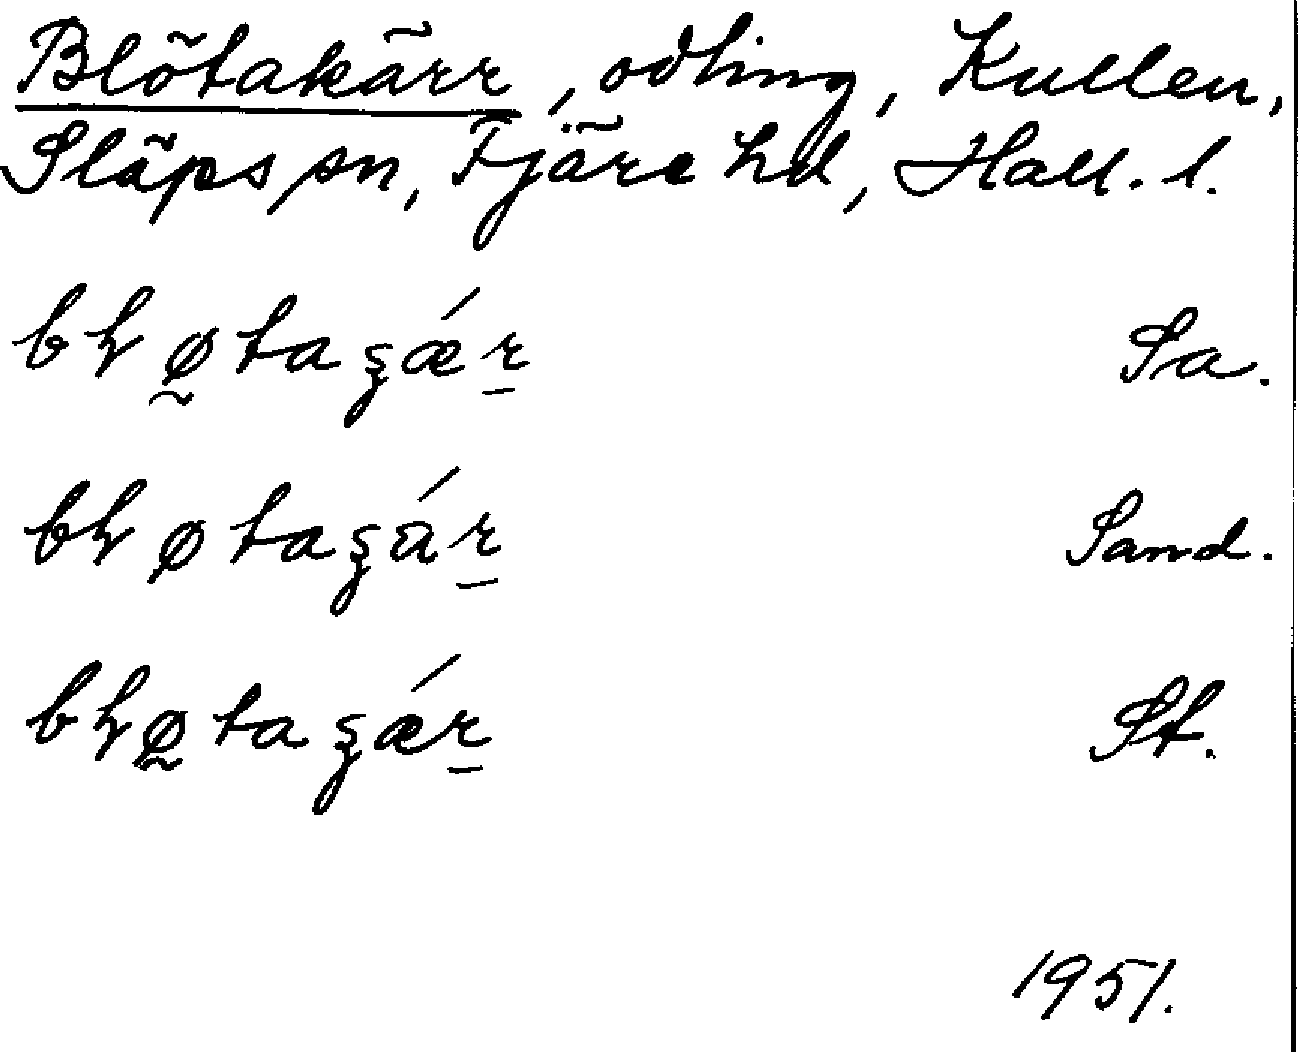 Blötakärr, odling, Kullen,
Släps sn, Fjäre hd, Hall. l.
bɫø̰taʂǽr̲ Sa.
bɫøtaʂár̲ Sand.
bɫø̰taʂǽr̲ St.
1951.